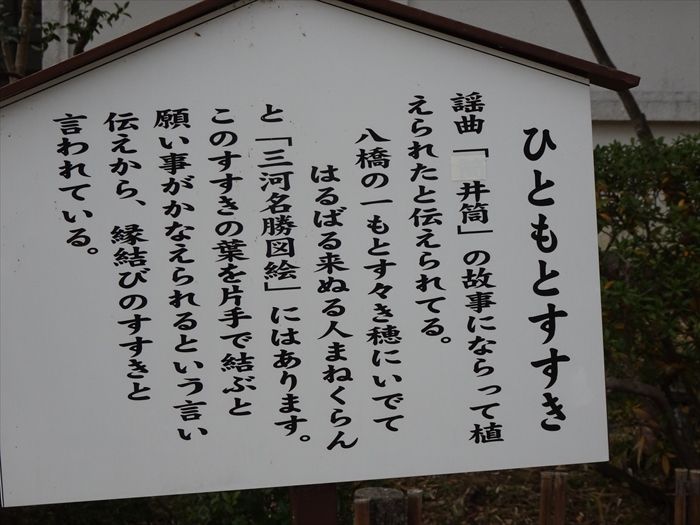 ひともとすすき
謡曲「井筒」の故事にならって植
えられたと伝えられてる。
八橋の一もとすゝき穂にいでて
はるばる来ぬる人まねくらん
と「三河名勝図絵」にはあります。
このすすきの葉を片手で結ぶと
願い事がかなえられるという言い
伝えから、縁結びのすすきと
言われている。